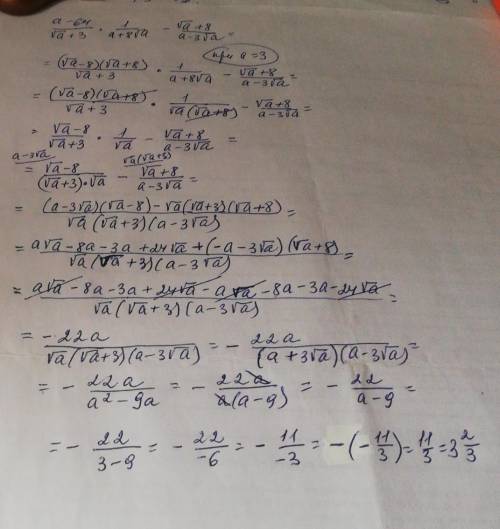 (a-64)/(√a+3) · 1/(a+8√a) - (√a+8)/(a-3√a) =
при a=3
= ((√a-8)(√a+8))/(√a+3) · 1/(a+8√a) - (√a+8)/(a-3√a) =
= ((√a-8)(√a+8))/(√a+3) · 1/(√a(√a+8)) - (√a+8)/(a-3√a) =
= (√a-8)/(√a+3) · 1/√a - (√a+8)/(a-3√a) =
a-3√a √a(√a+3)
= (√a-8)/((√a+3)·√a) - (√a+8)/(a-3√a) =
= ((a-3√a)(√a-8)-√a(√a+3)(√a+8))/(√a(√a+3)(a-3√a)) =
= (a√a-8a-3a+24√a+(-a-3√a)(√a+8))/(√a(√a+3)(a-3√a)) =
= (a√a-8a-3a+24√a-a√a-8a-3a-24√a)/(√a(√a+3)(a-3√a)) =
= (-22a)/(√a(√a+3)(a-3√a)) = - (22a)/((a+3√a)(a-3√a)) =
= - (22a)/(a²-9a) = - (22a)/(a(a-9)) = - 22/(a-9) =
= - 22/(3-9) = - 22/(-6) = - 11/(-3) = -(-11/3) = 11/3 = 3 2/3